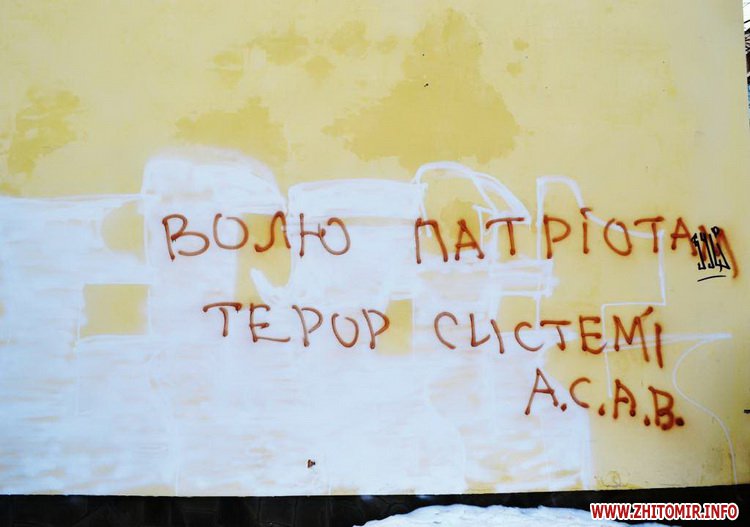 ВОЛЮ ПАТРІОТАМ
ТЕРОР СИСТЕМІ
A.C.A.B.
WWW.ZHITOMIR.INFO